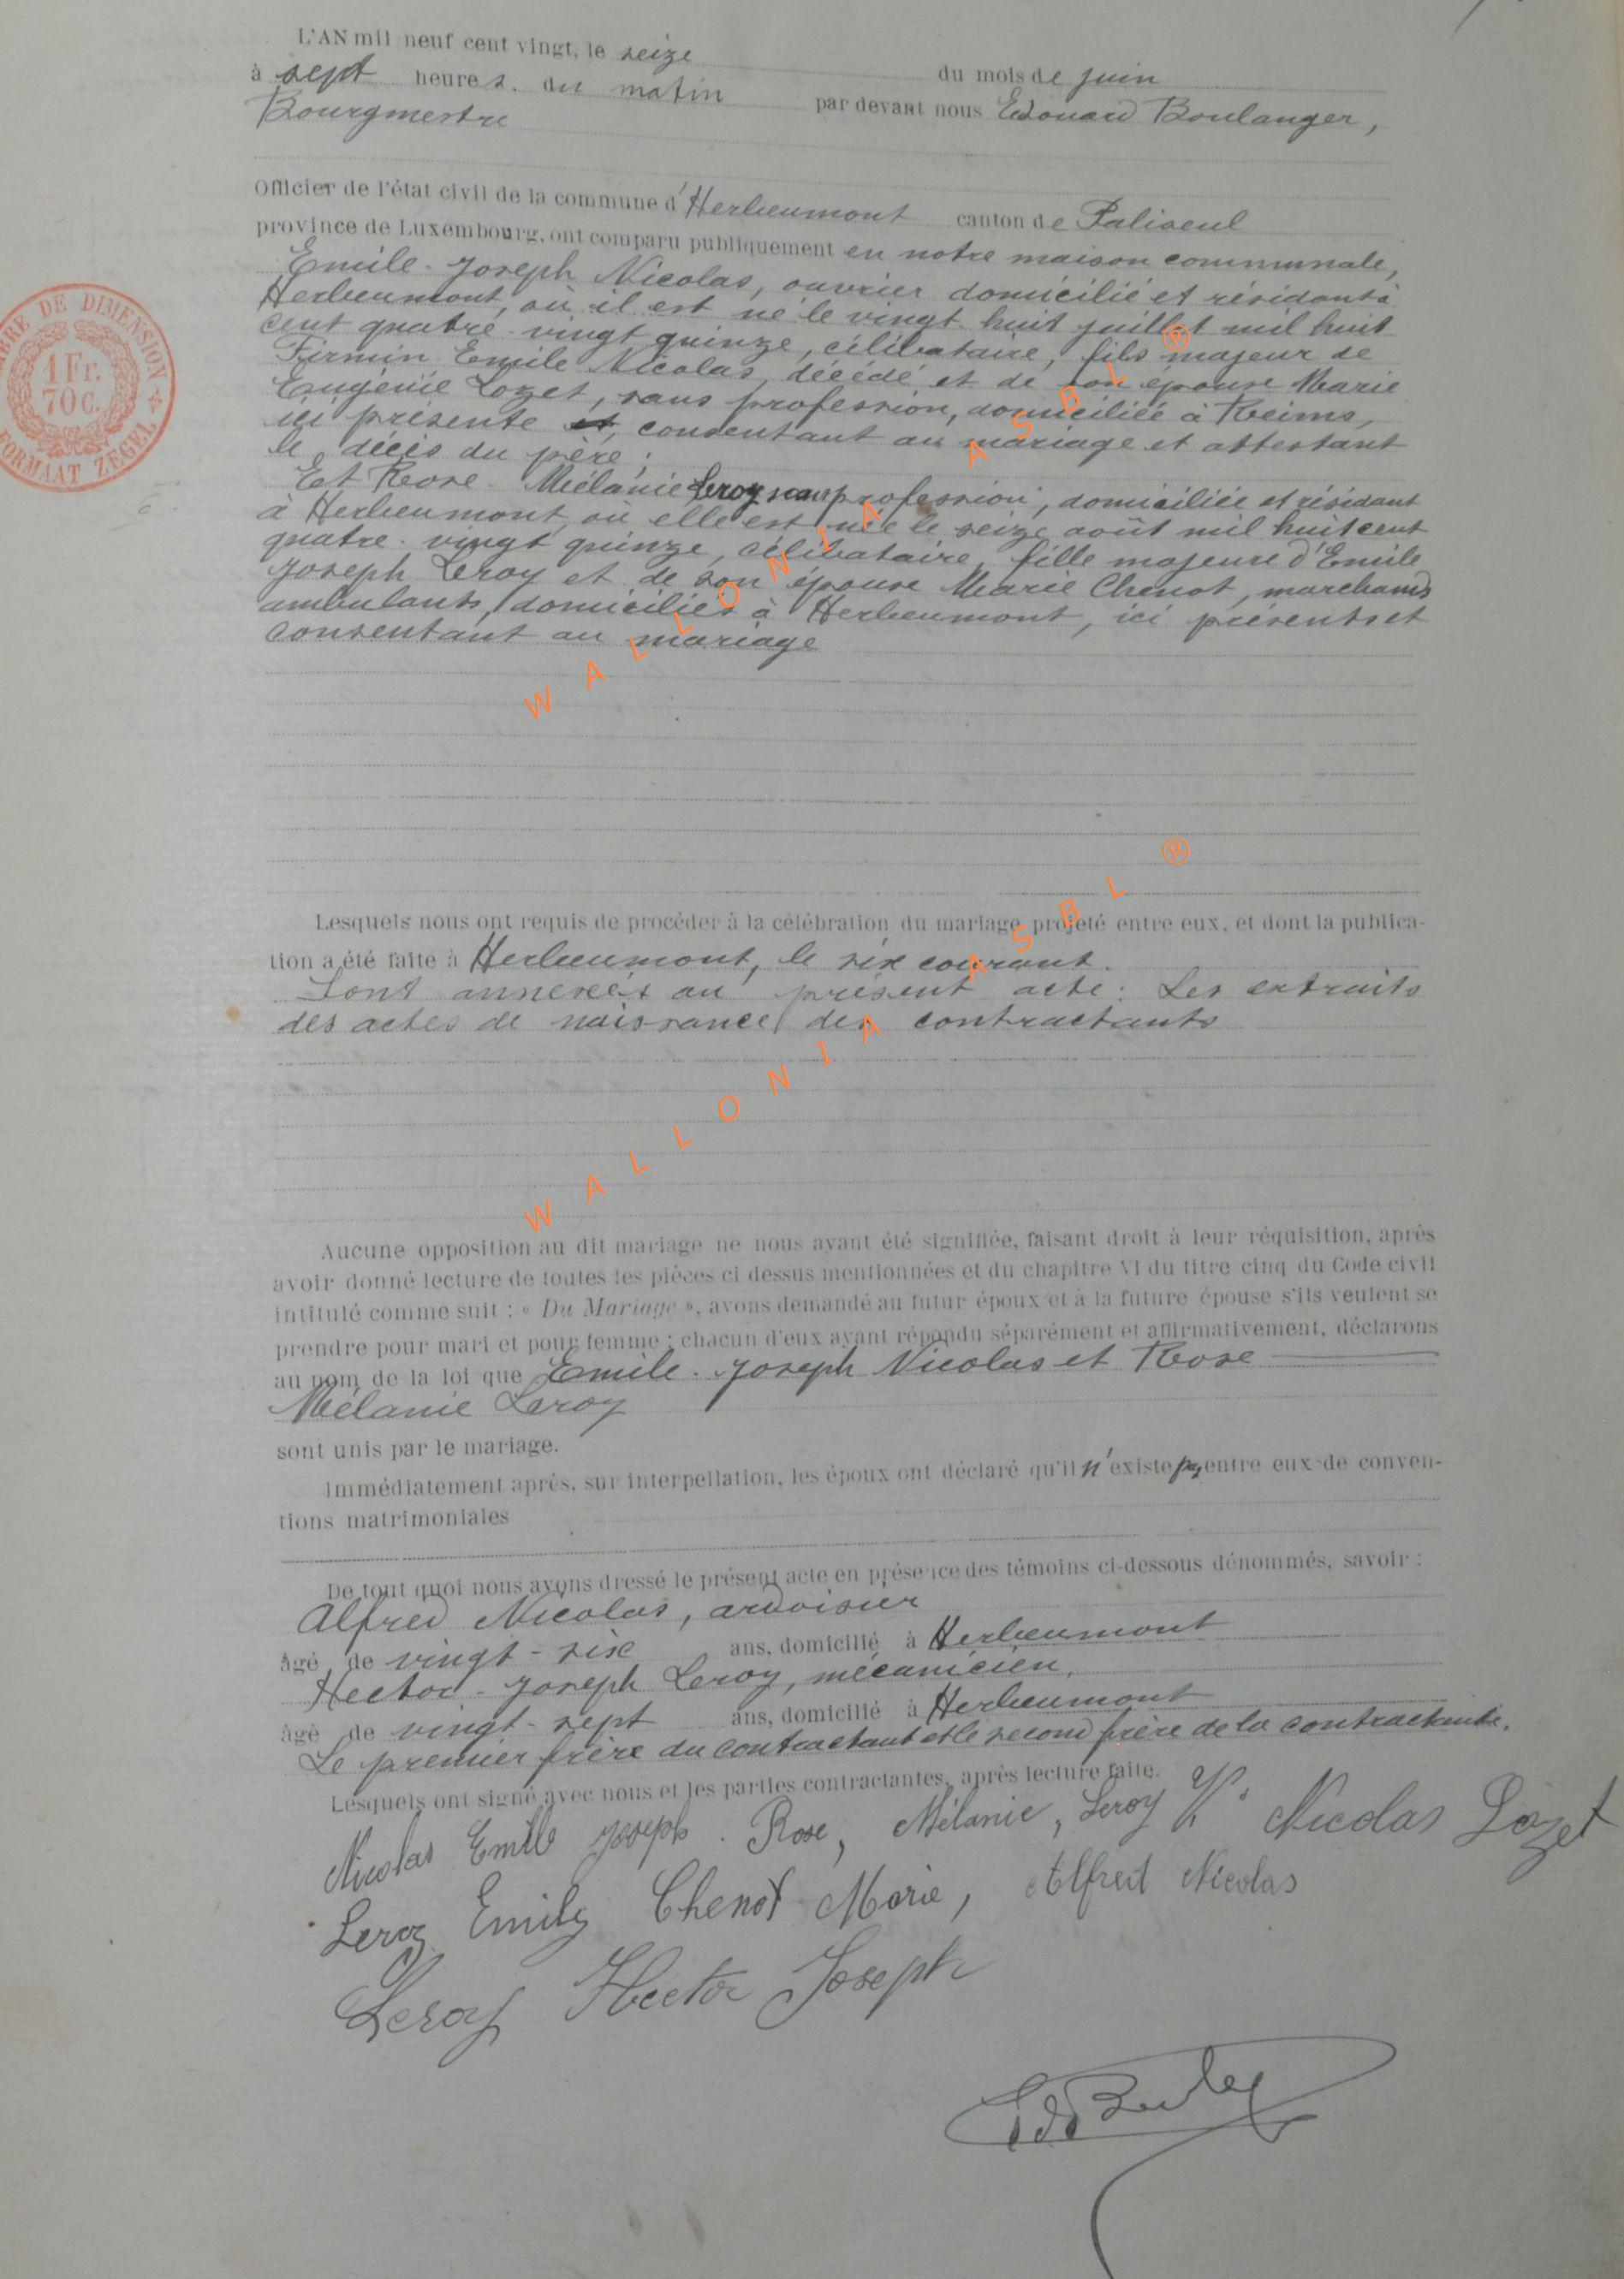 L'AN mil neuf cent vingt, le seize du mois de juin
à sept heures. du matin par devant nous Edouard Boulanger,
Bourgmestre
Officier de l'état civil de la commune d'Herbeumont canton de Paliseul
province de Luxembourg, ont comparu publiquement en notre maison communale,
Emile-Joseph Nicolas, ouvrier domicilié et résidant à
Herbeumont, où il est né le vingt-huit juillet mil huit
cent quatre-vingt quinze, célibataire, fils majeur de
Firmin Emile Nicolas, décédé et de son épouse Marie
Eugénie Lozet, sans profession, domiciliée à Reims,
ici présente, consentant au mariage et attestant
le décès du père;
Et Rose-Mélanie Leroy sans profession, domiciliée et résidant
à Herbeumont, où elle est née le seize août mil huit cent
quatre-vingt quinze, célibataire, fille majeure d'Emile
Joseph Leroy et de son épouse Marie Chenot, marchands
ambulants, domiciliés à Herbeumont, ici présents et
consentant au mariage
Lesquels nous ont requis de procéder à la célébration du mariage projeté entre eux, et dont la publica-
tion a été faite à Herbeumont, le six courant.
Sont annexées au présent acte: Les extraits
des actes de naissance des contractants
Aucune opposition au dit mariage ne nous ayant été signifiée, faisant droit à leur réquisition, après
avoir donné lecture de toutes les pièces ci dessus mentionnées et du chapitre VI du titre cinq du Code civil
intitulé comme suit : « Du Mariage », avons demandé au futur époux et à la future épouse s'ils veulent se
prendre pour mari et pour femme ; chacun d'eux ayant répondu séparément et affirmativement, déclarons
au nom de la loi que Emile-Joseph Nicolas et Rose
Mélanie Leroy
sont unis par le mariage.
Immédiatement après, sur interpellation, les époux ont déclaré qu'il n'existe pas entre eux de conven-
tions matrimoniales
De tout quoi nous avons dressé le présent acte en présence des témoins ci-dessous dénommés, savoir :
Alfred Nicolas, ardoisier
âgé de vingt-six ans, domicilié à Herbeumont
Hector-Joseph Leroy, mécanicien,
âgé de vingt-sept ans, domicilié à Herbeumont
Le premier frère du contractant et le second frère de la contractante.
Lesquels ont signé avec nous et les parties contractantes, après lecture faite.
Nicolas Emile Joseph. Rose, Mélanie, Leroy Ve Nicolas Lozet
Leroy Emile Chenot Marie, Alfred Nicolas
Leroy Hector Joseph
TIMBRE DE DIMENSION
1 Fr.
70 C.
FORMAAT ZEGEL
WALLONIA ASBL ®
WALLONIA ASBL ®